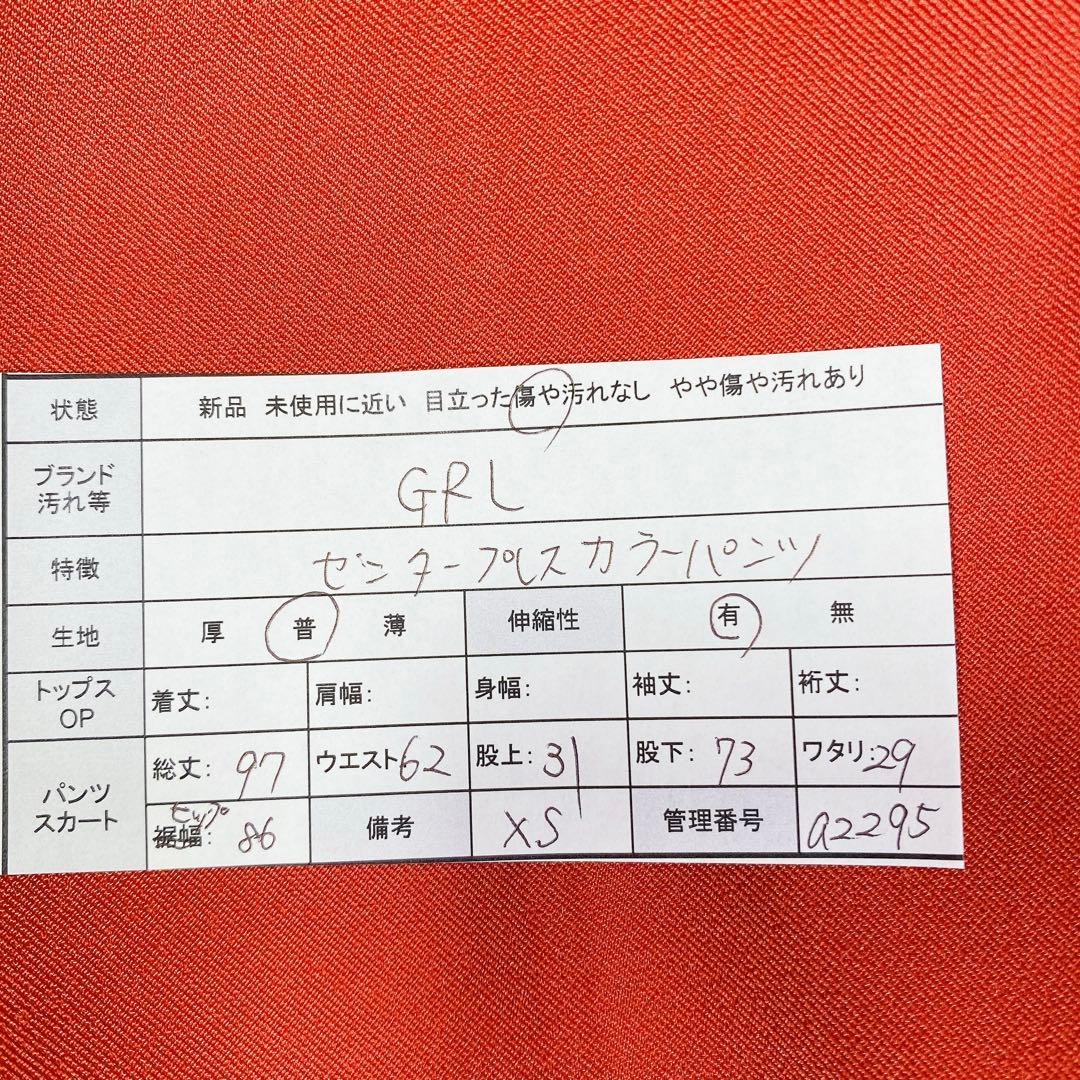 状態 新品 未使用に近い 目立った傷や汚れなし やや傷や汚れあり
ブランド
汚れ等 GRL
特徴 センタープレスカラーパンツ
生地 厚 普 薄 伸縮性 有 無
トップス
OP 着丈: 肩幅: 身幅: 袖丈: 裄丈:
パンツ
スカート 総丈: 97 ウエスト62 股上: 31 股下: 73 ワタリ:29
ヒップ
裾幅: 86 備考 XS 管理番号 a2295